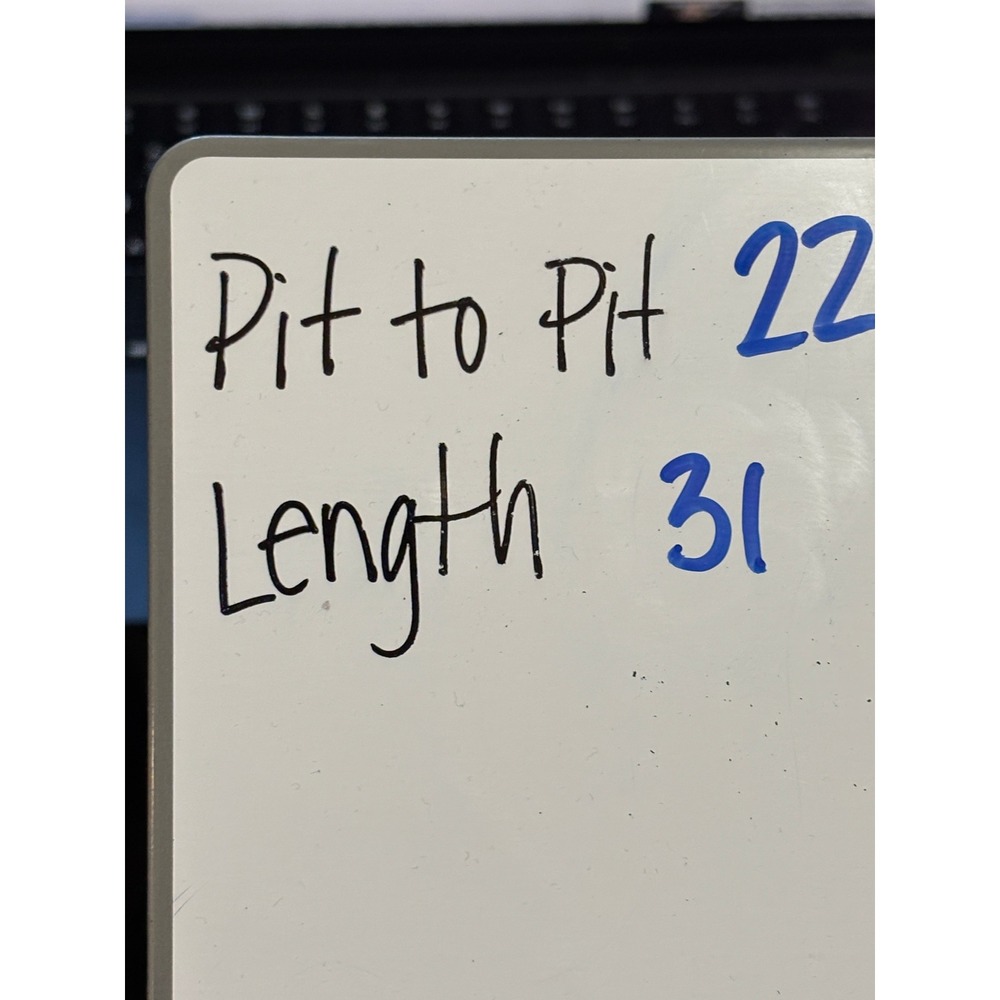 Pit to Pit 22
Length 31